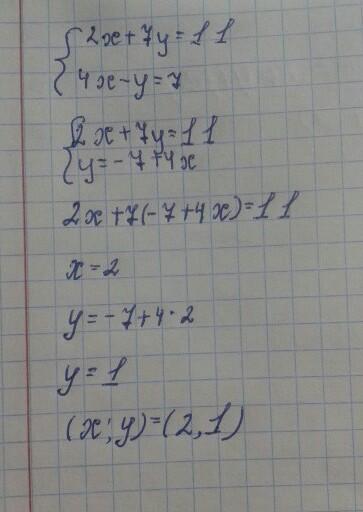 2x+7y=11
4x-y=7
2x+7y=11
y=-7+4x
2x+7(-7+4x)=11
x=2
y=-7+4·2
y=1
(x;y)=(2,1)